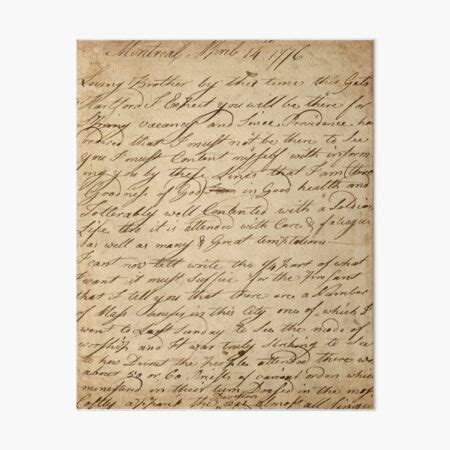 Montreal April 14th 1776
Loving Brother by this time this Gets
Hartford I Expect you will be there for
vacancy and Since Providence has
ordered that I must not be there to See
you I must Content myself with inform
ing you by these Lines that I am
Goodness of God in Good health and
Tollerably well Contented with a Soldiers
Life tho it is attended with Care & fatigue
as well as many & Great temptations
I cant now tell write the 1/4 Part of what
I want it must Suffice for the Present
that I tell you that there are a Number
of Mass Houses in this City one of which I
went to Last Sunday to See the mode of
worship and it was truly Striking to See
to how Devout the People attended there were
about 50 or 60 Priests of various orders which
ministered in their turn Dressed in the most
Costly apparel the Devotion was almost all Singing